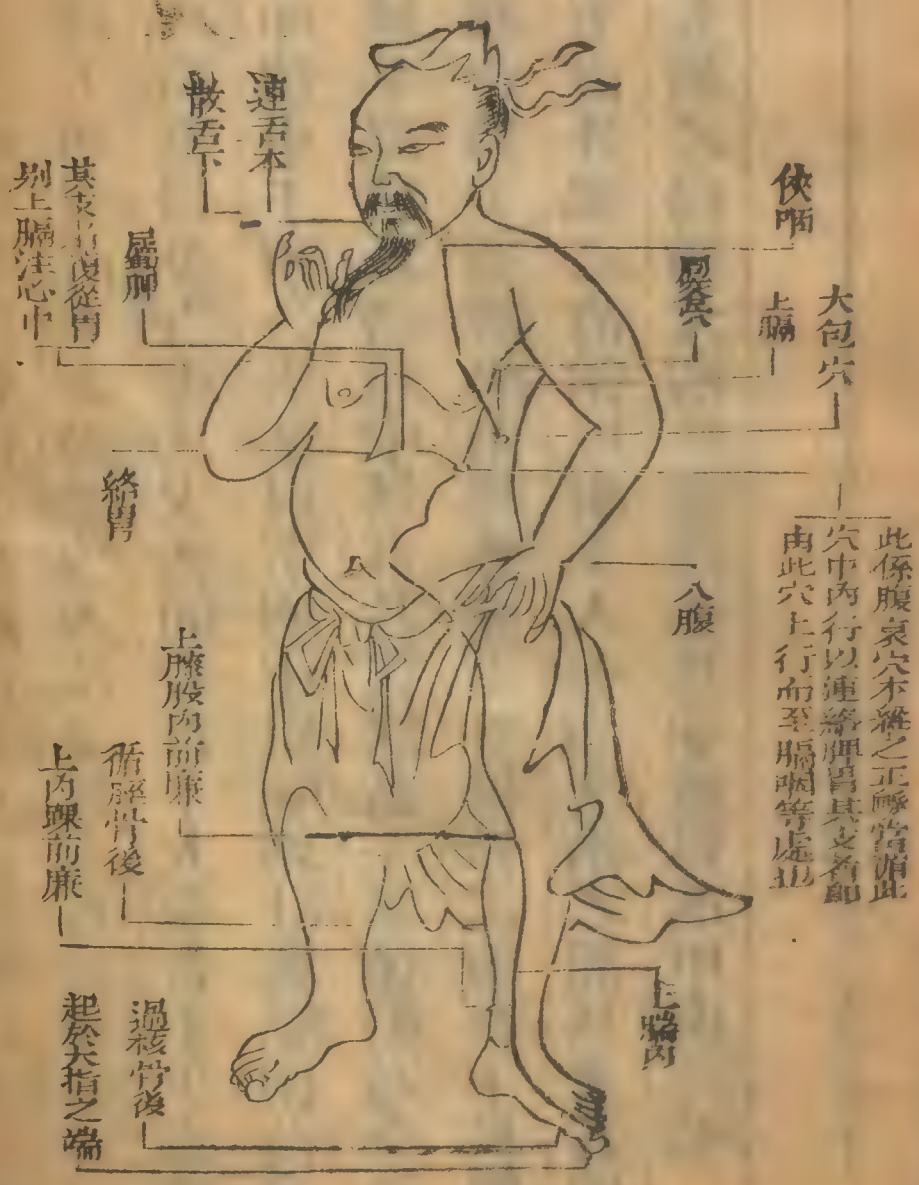 俠咽
大包穴
上膈
周榮穴
此係腹哀穴本經之正脈當循此
穴中內行以連絡脾胃其支者即
由此穴上行而至膈咽等處也
入腹
上腨內
連舌本
散舌下
屬脾
其支者復從胃
別上膈注心中
絡胃
上膝股內前廉
循䯒骨後
上內踝前廉
過核骨後
起於大指之端